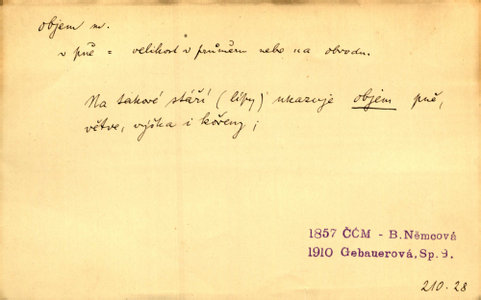 objem m.
v pně = velikost v průměru nebo na obvodu.
Na takové stáří (lípy) ukazuje objem pně,
větve, výška i kořeny;
1857 ČČM - B.Němcová
1910 Gebauerová, Sp. 9.
210-28